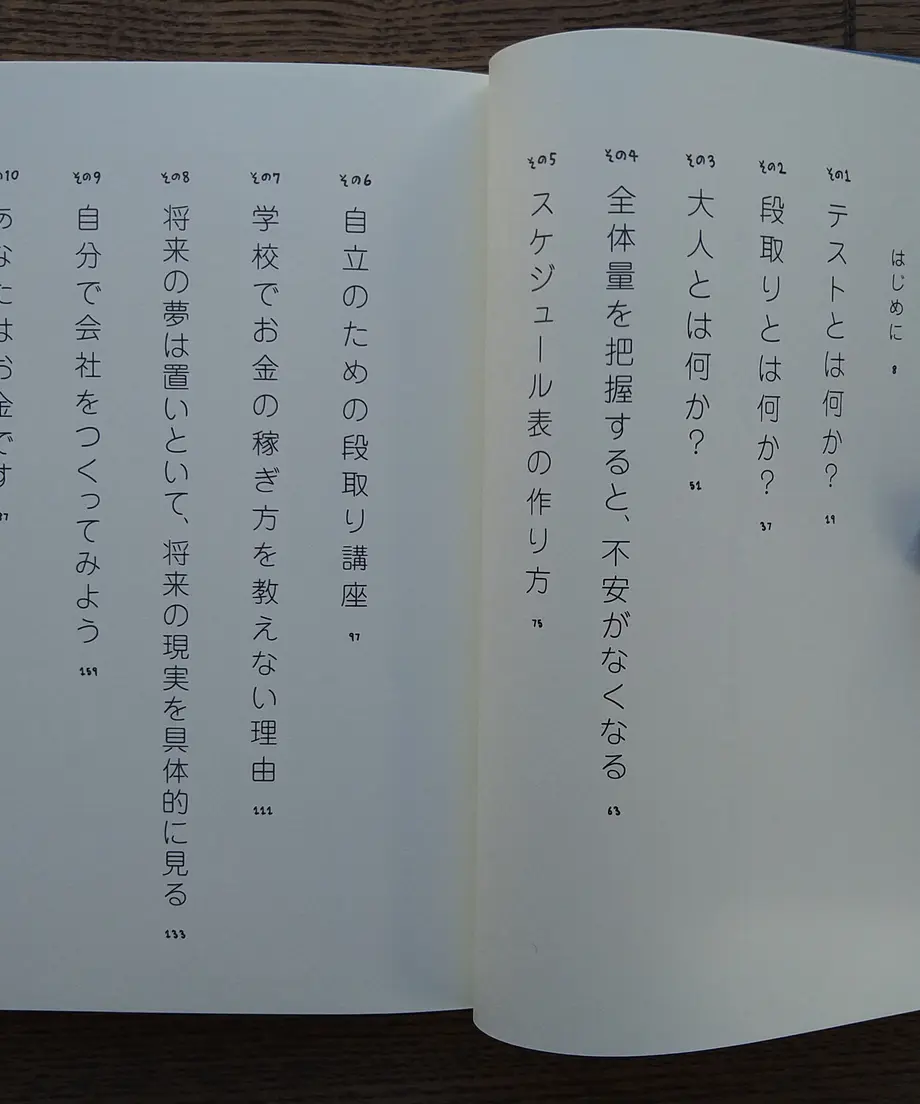 はじめに 8
その1 テストとは何か? 19
その2 段取りとは何か? 37
その3 大人とは何か? 51
その4 全体量を把握すると、不安がなくなる 63
その5 スケジュール表の作り方 75
その6 自立のための段取り講座 97
その7 学校でお金の稼ぎ方を教えない理由 111
その8 将来の夢は置いといて、将来の現実を具体的に見る 133
その9 自分で会社をつくってみよう 159
の10 あなたはお金です 87